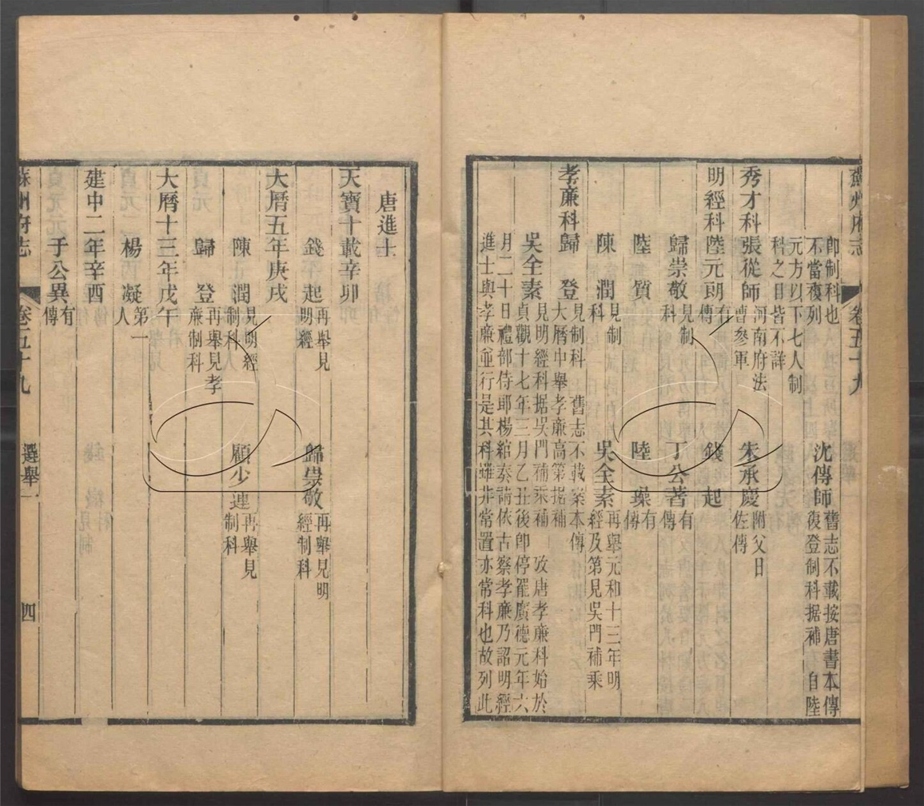 蘇州府志 卷五十九
即制科也
不當複列
沈傳師 舊志不載按唐書本傳
復登制科据補 自陸
元方以下七人制
科之目皆不詳
秀才科張從師 河南府法
曹參軍
朱承慶 附父日
佐傳
明經科陸元朗 有
傳
錢 起
歸崇敬 見制
科
丁公著 有
傳
陸 質
陸 璪 有
傳
陳 潤 見制
科
吳全素 再舉元和十三年明
經及第見吳門補乘
孝廉科歸 登 見制科 舊志不載案本傳
大曆中舉孝廉高第据補
吳全素 見明經科据吳門補乘補 攷唐孝廉科始於
貞觀十七年三月乙丑後卽停罷廣德元年六
月二十日禮部侍郎楊綰奏請依古察孝廉乃詔明經
進士與孝廉並行是其科雖非常置亦常科也故列此
唐進士
天寶十載辛卯
錢 起 再舉見
明經
歸崇敬 再舉見明
經制科
大曆五年庚戌
陳 潤 見明經
制科
顧少連 再舉見
制科
歸 登 再舉見孝
廉制科
大曆十三年戊午
楊 凝 第一
人
建中二年辛酉
于公異 有
傳
蘇州府志 卷五十九 選舉一 四